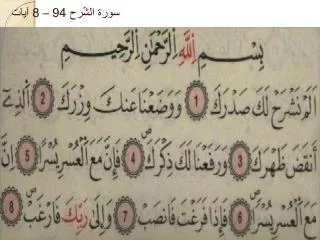 سورة الشّرح 94 – 8 آيات
بِسْمِ اللَّهِ الرَّحْمَٰنِ الرَّحِيمِ
أَلَمْ نَشْرَحْ لَكَ صَدْرَكَ 1 وَوَضَعْنَا عَنكَ وِزْرَكَ 2 الَّذِي
أَنقَضَ ظَهْرَكَ 3 وَرَفَعْنَا لَكَ ذِكْرَكَ 4 فَإِنَّ مَعَ الْعُسْرِ يُسْرًا 5 إِنَّ
مَعَ الْعُسْرِ يُسْرًا 6 فَإِذَا فَرَغْتَ فَانصَبْ 7 وَإِلَىٰ رَبِّكَ فَارْغَب 8